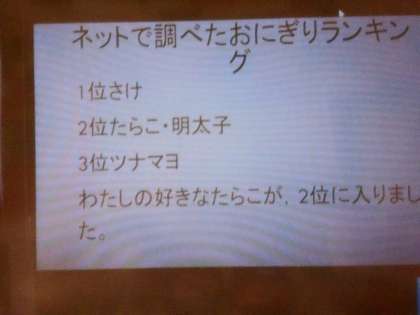 ネットで調べたおにぎりランキン
グ
1位さけ
2位たらこ・明太子
3位ツナマヨ
わたしの好きなたらこが，2位に入りまし
た。